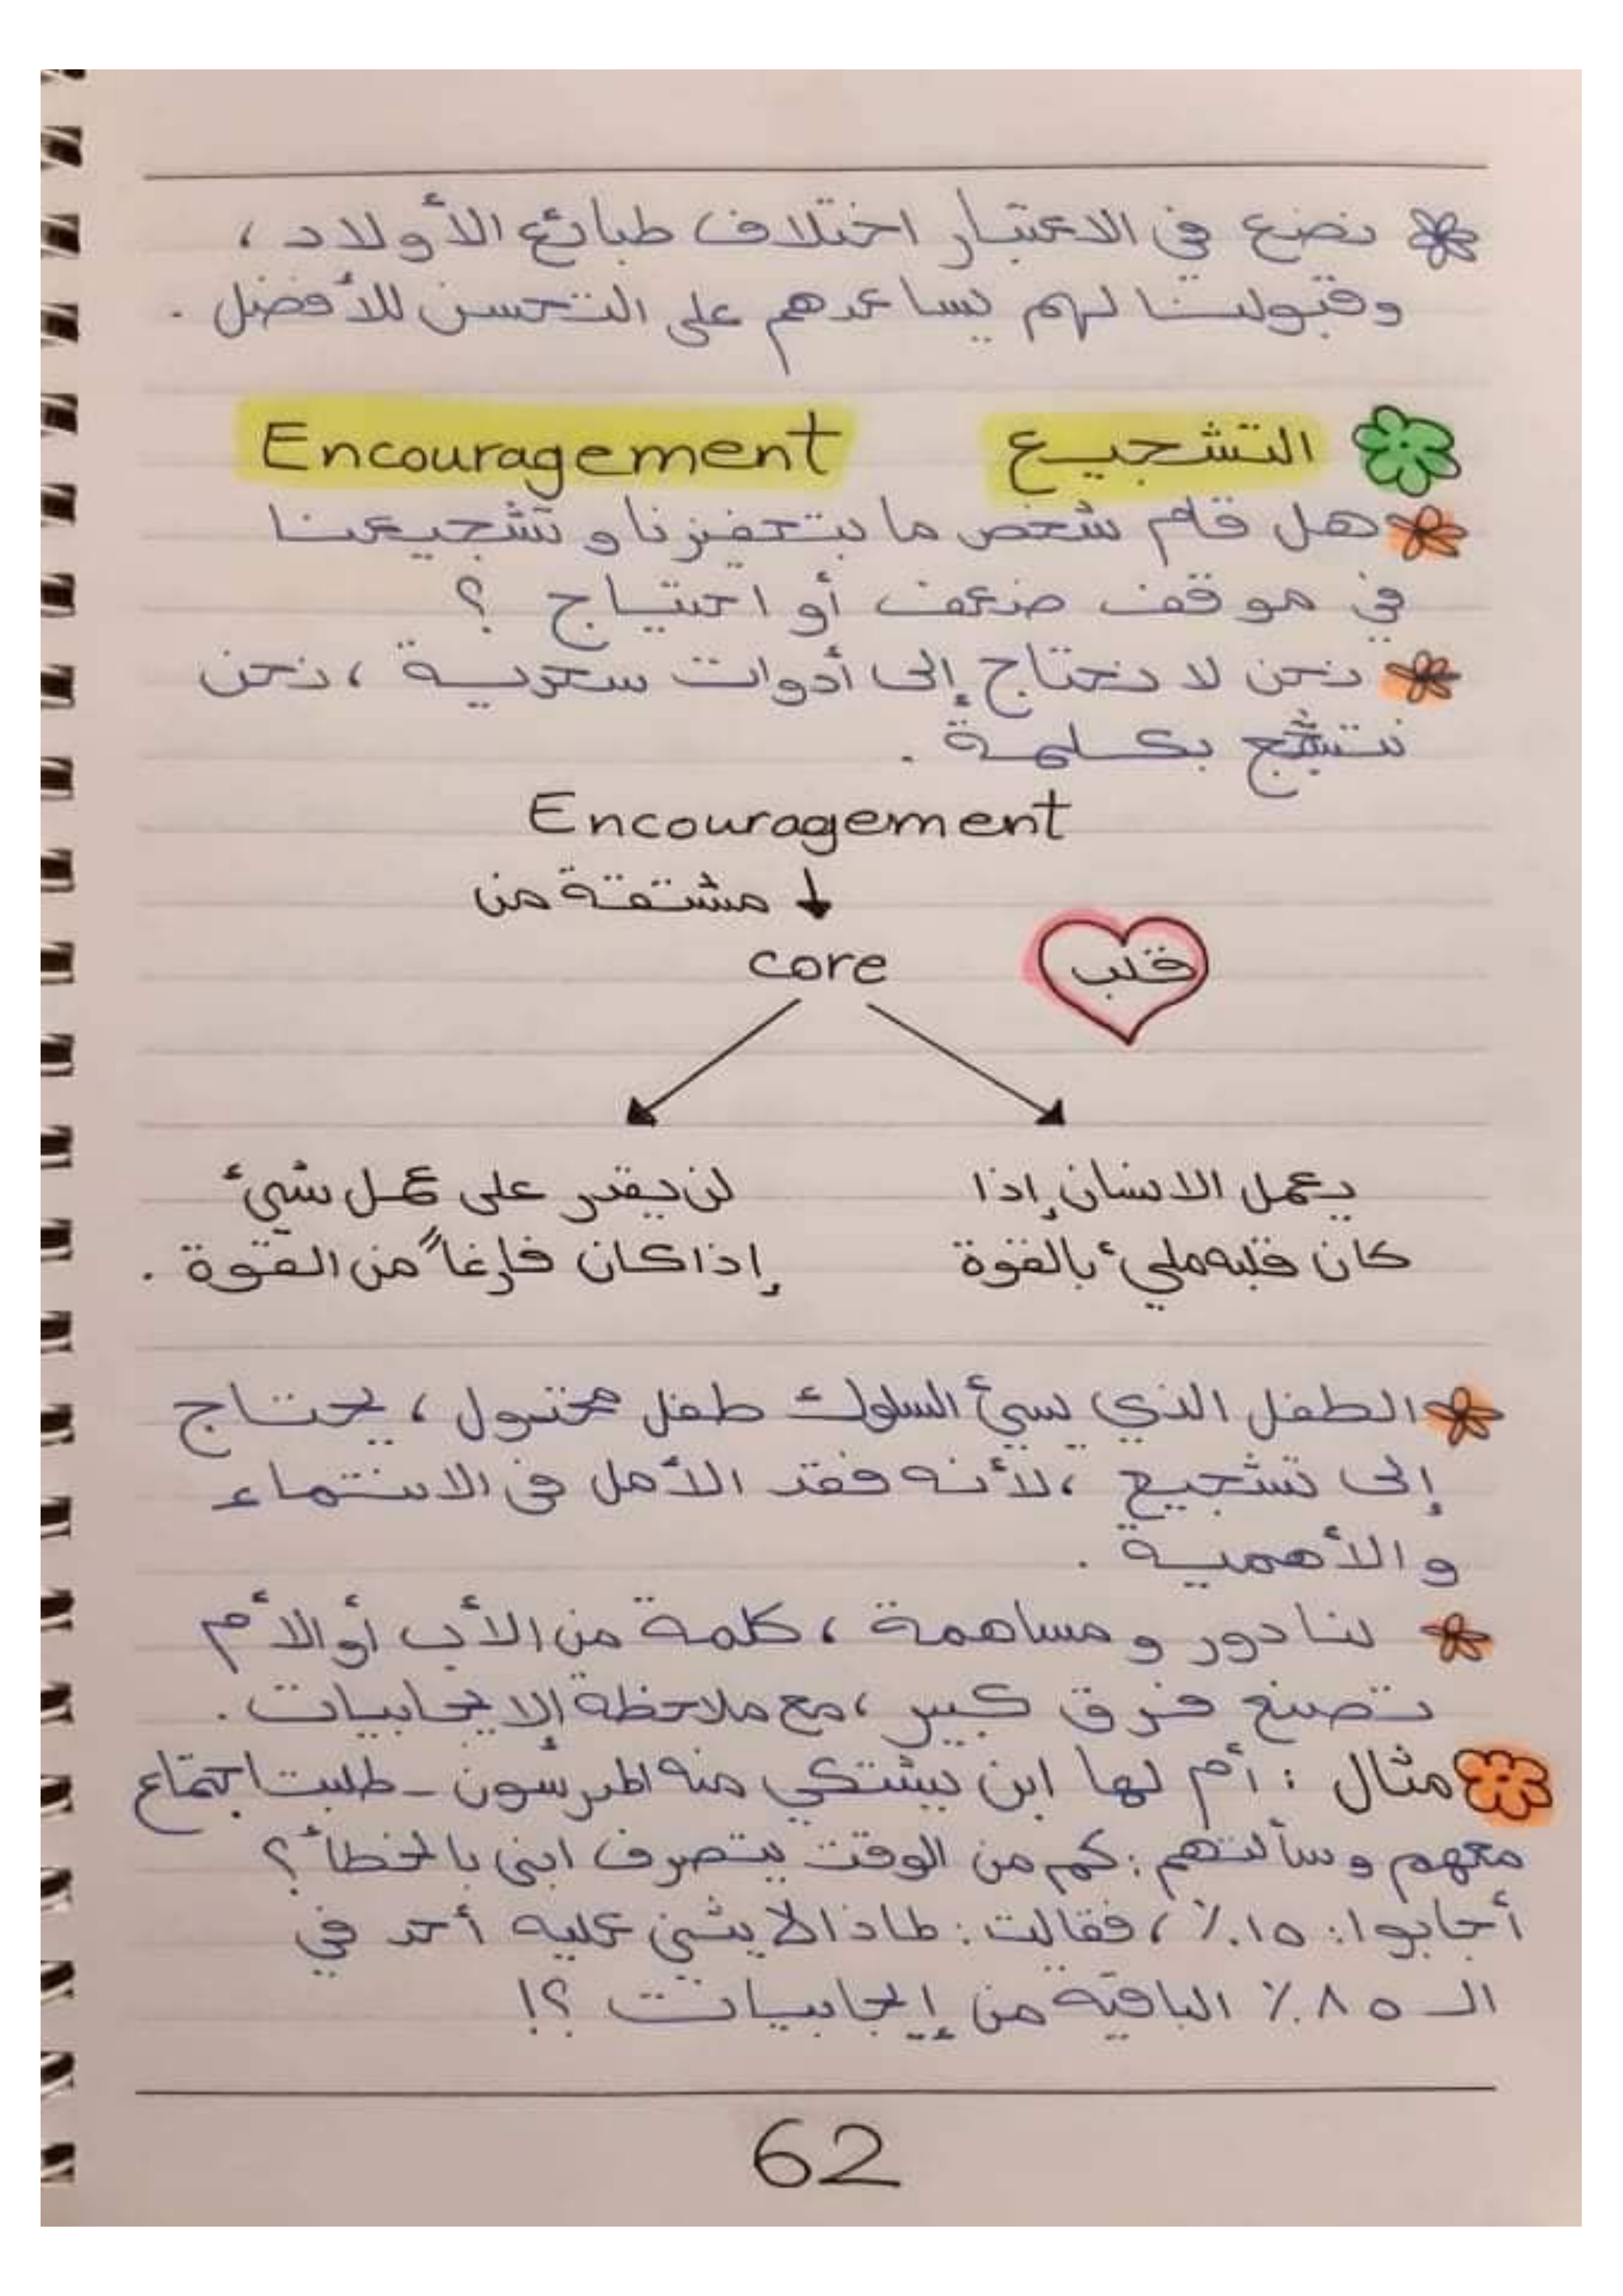 نضع في الاعتبار اختلاف طبائع الأولاد،
وقبولنا لهم يساعدهم على التحسن للأفضل.
التشجيع Encouragement
هل قام شخص ما بتحفيزنا و تشجيعنا
في موقف ضعف أو احتياج ؟
نحن لا نحتاج إلى أدوات سحرية ، نحن
نتشجع بكلمة .
Encouragement
مشتقة من
core قلب
يعمل الانسان إذا
كان قلبه مليئ بالقوة
لن يقدر على عمل شيئ
إذا كان فارغاً من القوة .
الطفل الذي يسيئ السلوك طفل مخذول ، يحتاج
إلى تشجيع ، لأنه فقد الأمل في الانتماء
والأهمية .
لنا دور و مساهمة ، كلمة من الأب أو الأم
تصنع فرق كبير ، مع ملاحظة الإيجابيات .
مثال : أم لها ابن يشتكي منه المدرسون - طلبت اجتماع
معهم وسألتهم : كم من الوقت يتصرف ابني بالخطأ ؟
أجابوا : ١٥٪ ، فقالت : لماذا لا يثني عليه أحد في
الـ ٨٥٪ الباقية من إيجابيات ؟!
62